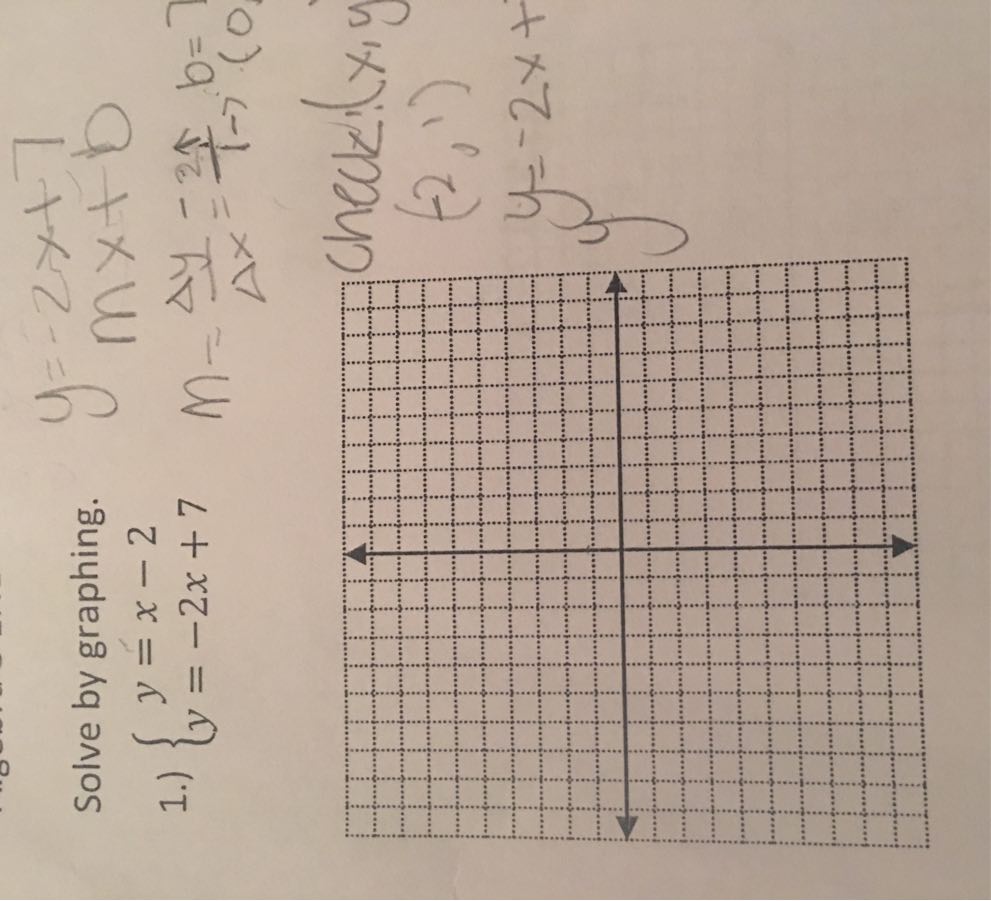 Solve by graphing.
1.) { y = x − 2
y = −2x + 7
y = -2x+7
mx+b
m = Δy/Δx = -2↑/1→ b=7
(0,
Check! (x, y
(-2, 1)
y = -2x +
y